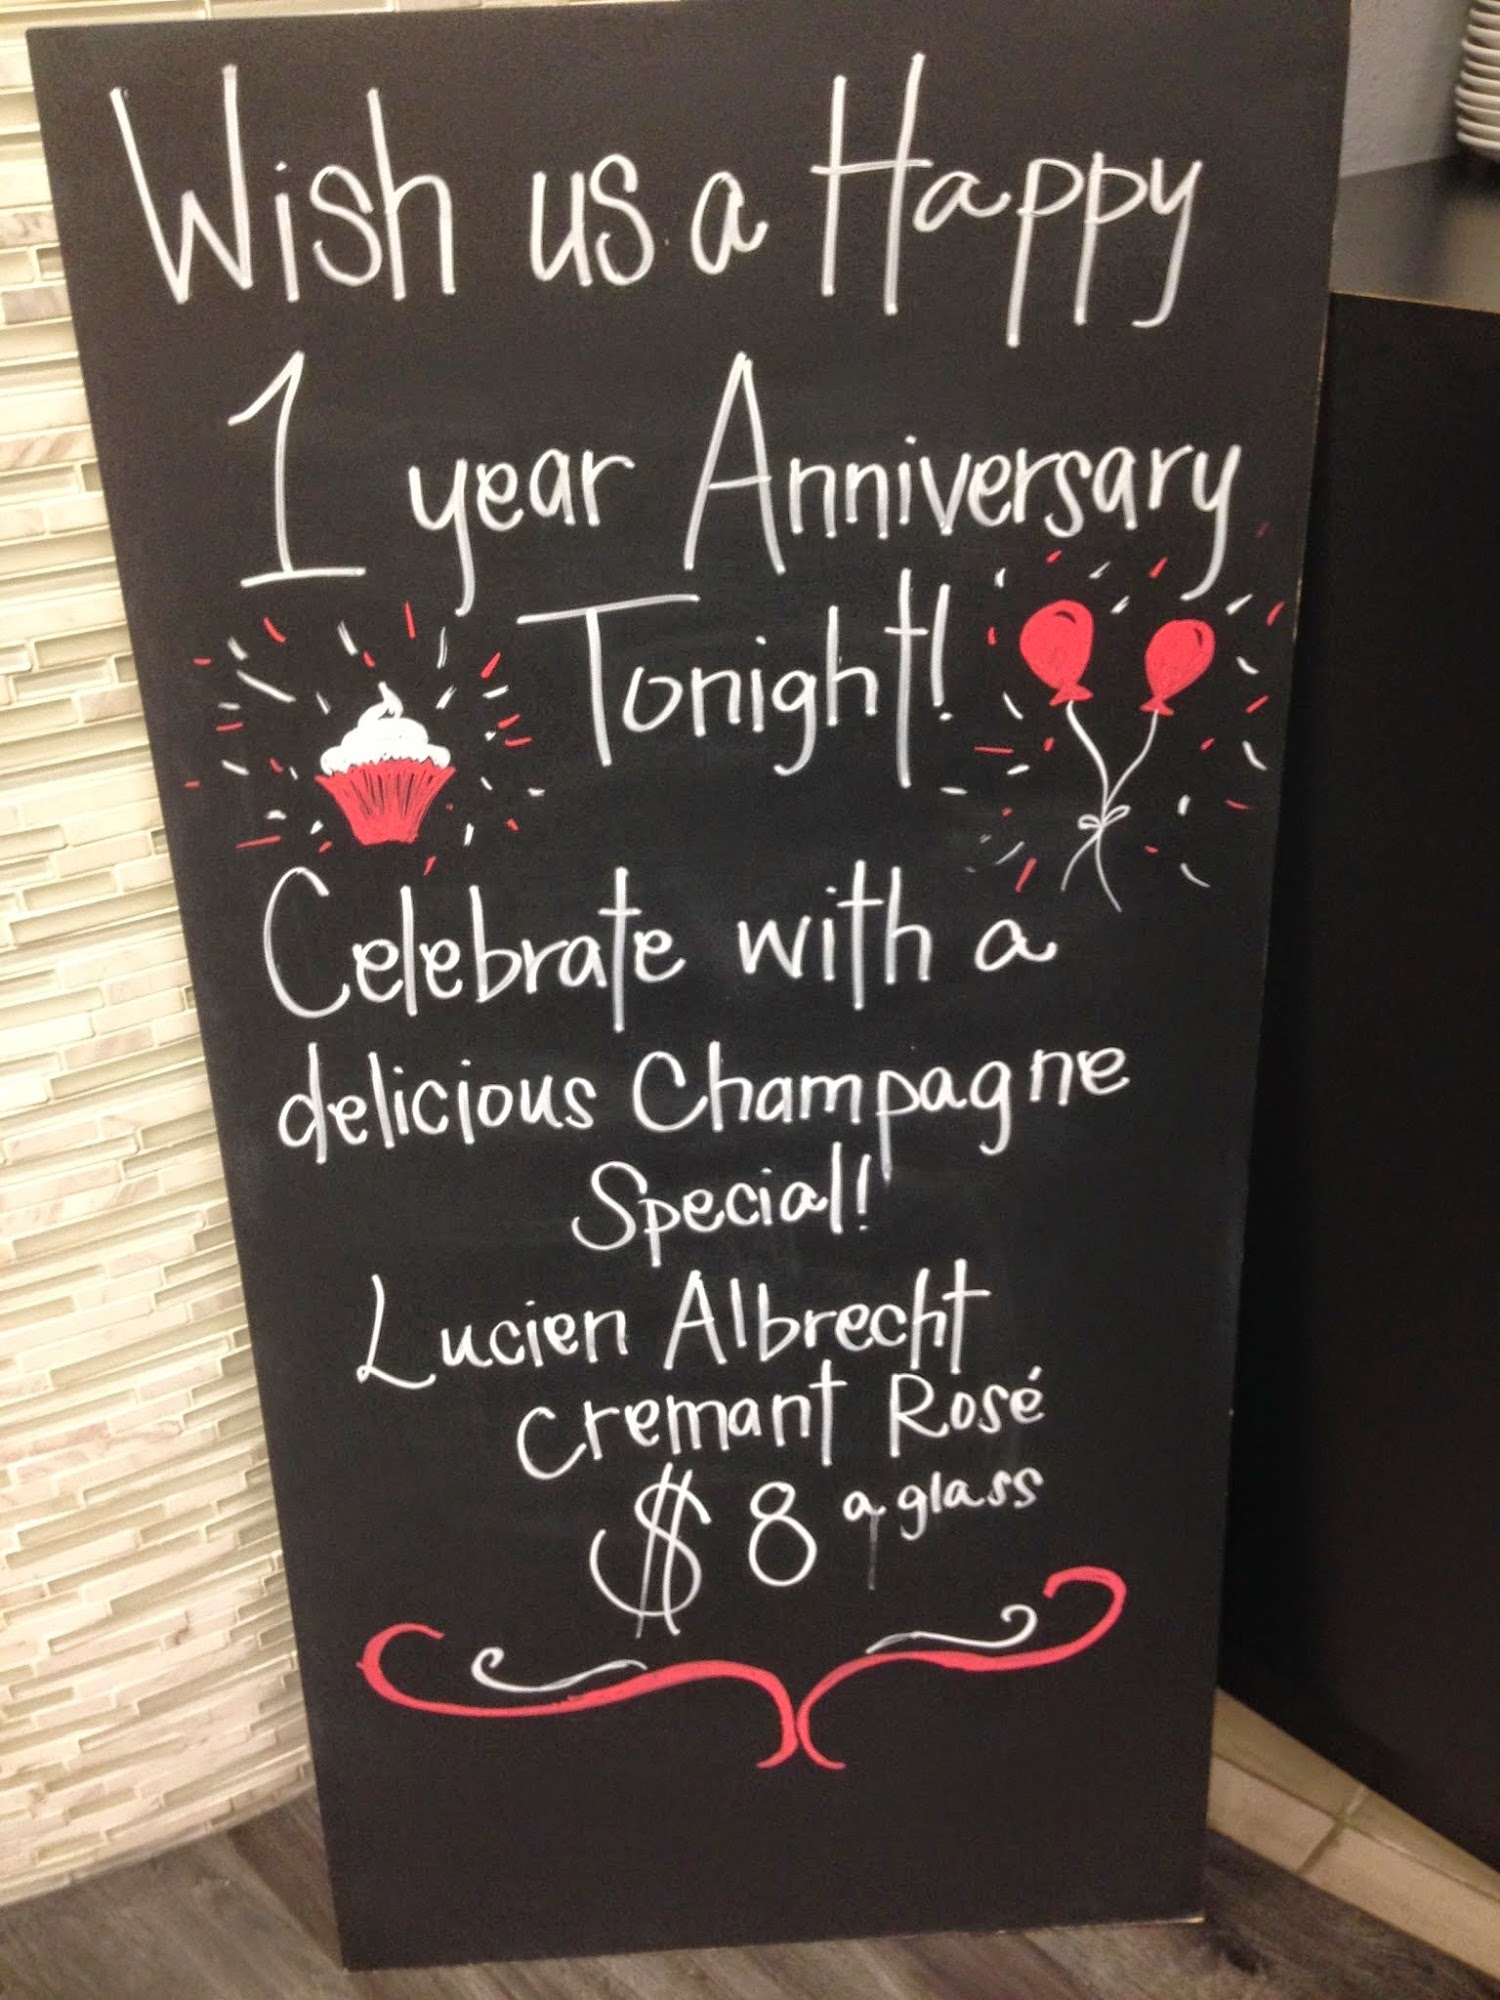 Wish us a Happy
1 year Anniversary
Tonight!
Celebrate with a
delicious Champagne
Special!
Lucien Albrecht
Cremant Rosé
$8 a glass